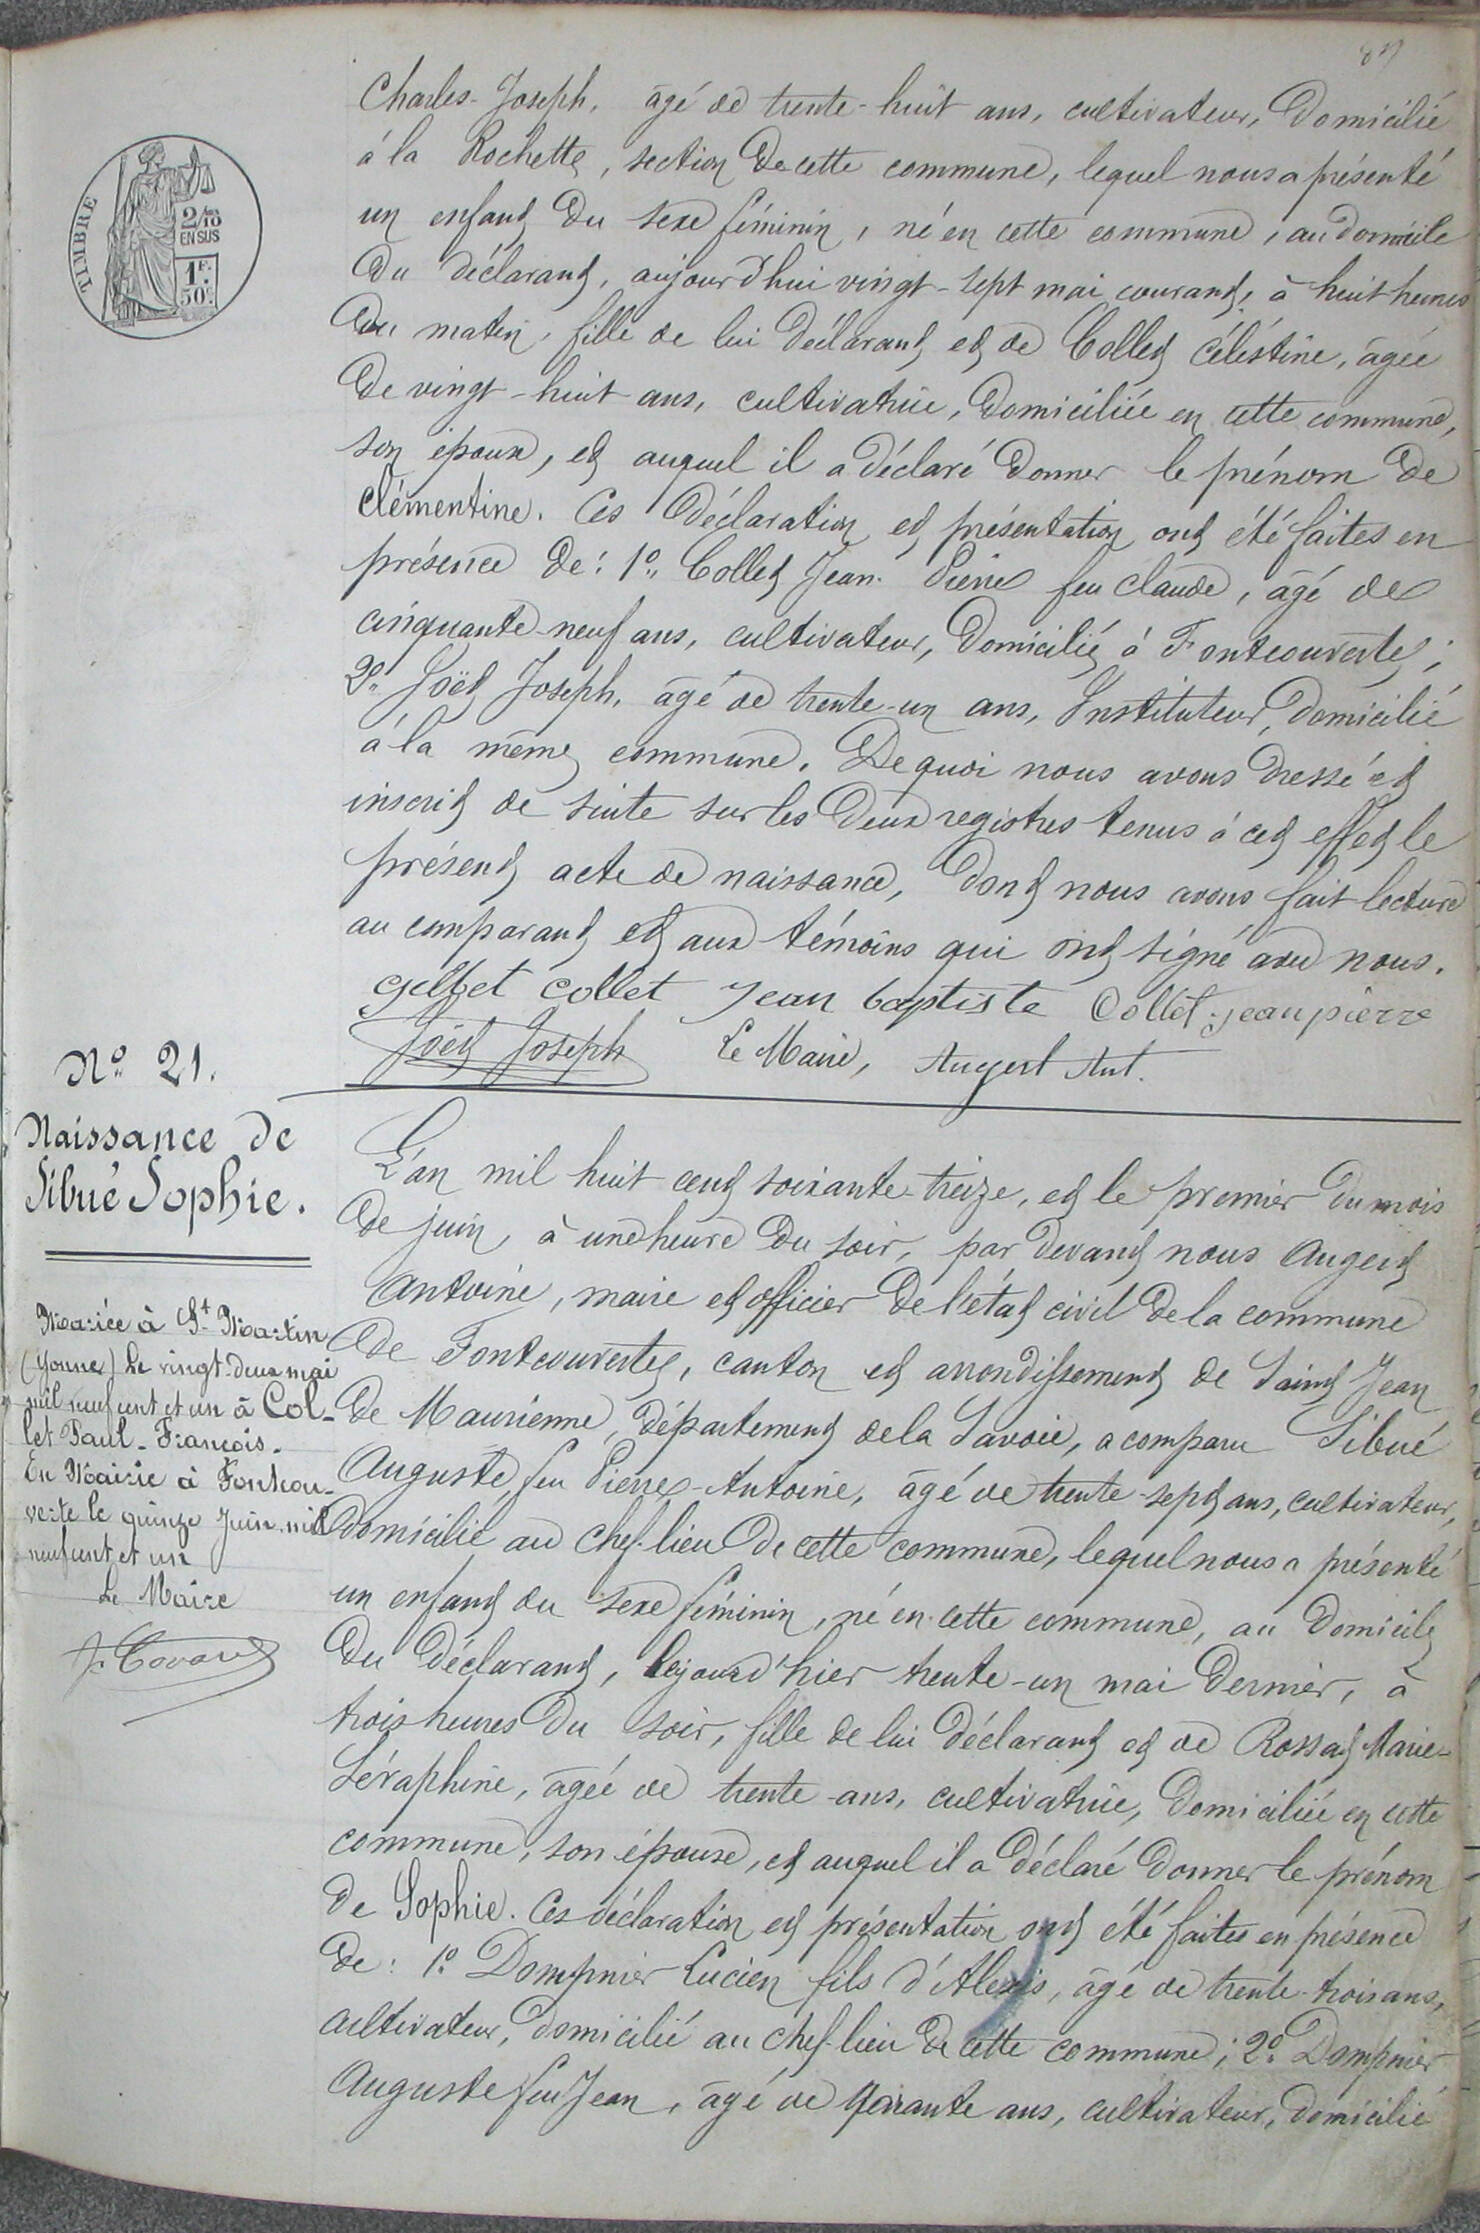 TIMBRE
2/10
EN SUS
1F.
50c.
Charles-Joseph, âgé de trente-huit ans, cultivateur, domicilié
à la Rochette, section de cette commune, lequel nous a présenté
un enfant du sexe féminin, né en cette commune, au domicile
du déclarant, aujourd'hui vingt-sept mai courant, à huit heures
du matin, fille de lui déclarant et de Collet Céléstine, âgée
de vingt-huit ans, cultivatrice, domiciliée en cette commune,
son épouse, et auquel il a déclaré donner le prénom de
Clémentine. Ces déclaration et présentation ont été faites en
présence de: 1° Collet Jean-Pierre feu Claude, âgé de
cinquante-neuf ans, cultivateur, domicilié à Fontcouverte;
2° Joët Joseph, âgé de trente-un ans, Instituteur, domicilié
à la même commune. De quoi nous avons dressé et
inscrit de suite sur les deux registres tenus à cet effet le
présent acte de naissance, dont nous avons fait lecture
au comparant et aux témoins qui ont signé avec nous.
gilbet collet Jean baptiste Collet jean pierre
Joët Joseph Le Maire, Augert Ant.
N° 21.
Naissance de
Sibué Sophie.
Mariée à St Martin
(Yonne) Le vingt-deux mai
mil neuf cent et un à Col-
let Paul-François.
En Mairie à Fontcou-
verte le quinze Juin mil
neuf cent et un
Le Maire
L'an mil huit cent soixante-treize, et le premier du mois
de juin, à une heure du soir, par devant nous Augert
Antoine, maire et officier de l'état civil de la commune
de Fontcouverte, canton et arrondissement de Saint Jean
de Maurienne, département de la Savoie, a comparu Sibué
Auguste, feu Pierre-Antoine, âgé de trente-sept ans, cultivateur,
domicilié au chef-lieu de cette commune, lequel nous a présenté
un enfant du sexe féminin, né en cette commune, au domicile
du déclarant, le jour d'hier trente-un mai dernier, à
trois heures du soir, fille de lui déclarant et de Rossat Marie-
Séraphine, âgée de trente-ans, cultivatrice, domiciliée en cette
commune, son épouse, et auquel il a déclaré donner le prénom
de Sophie. Ces déclaration et présentation ont été faites en présence
de: 1° Dompnier Lucien fils d'Alexis, âgé de trente-trois ans,
cultivateur, domicilié au chef-lieu de cette commune; 2° Dompnier
Auguste feu Jean, âgé de soixante ans, cultivateur, domicilié